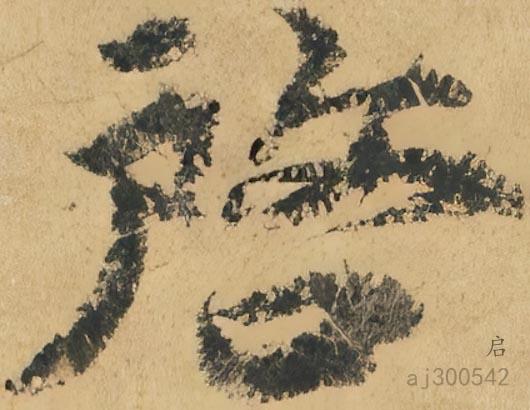 啓
启
aj300542